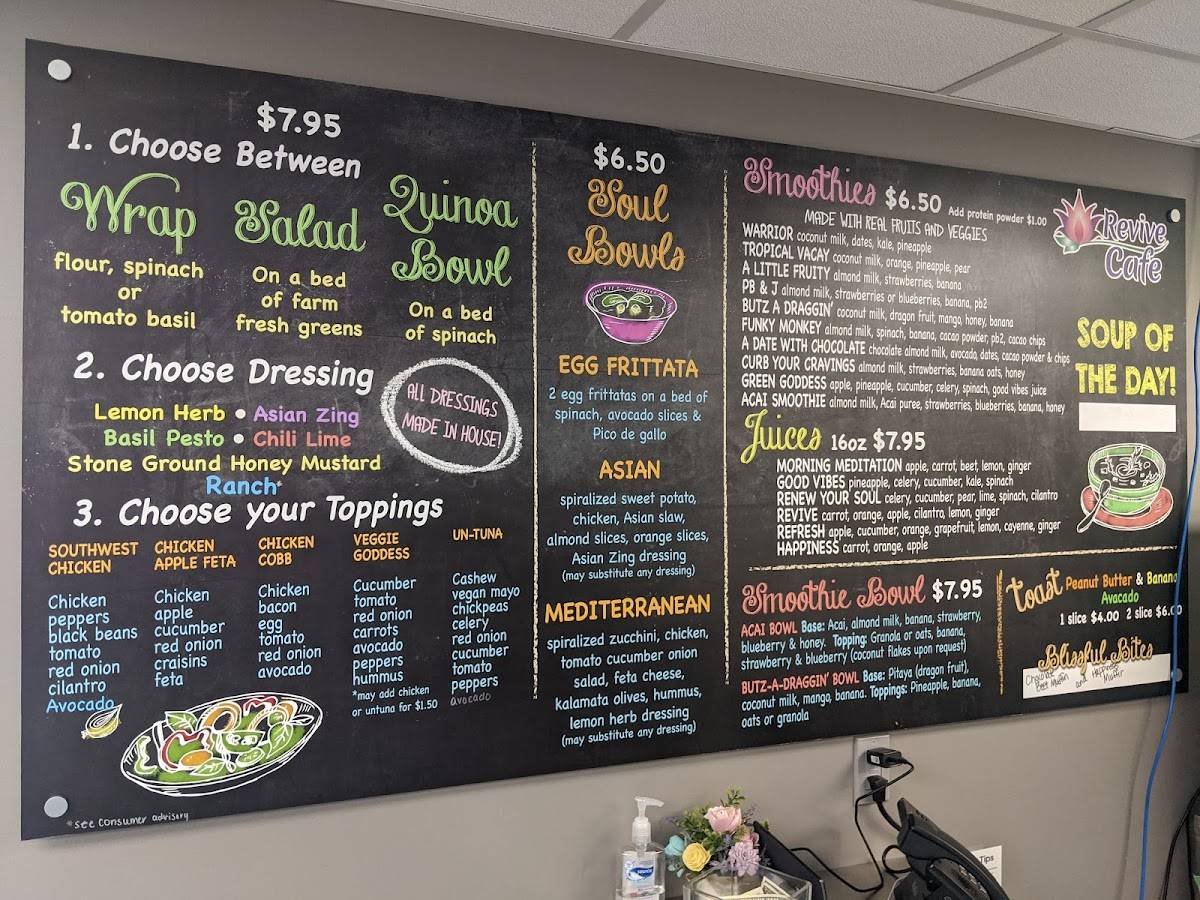 $7.95
1. Choose Between
Wrap
flour, spinach
or
tomato basil
Salad
On a bed
of farm
fresh greens
Quinoa
Bowl
On a bed
of spinach
2. Choose Dressing
Lemon Herb • Asian Zing
Basil Pesto • Chili Lime
Stone Ground Honey Mustard
Ranch*
ALL DRESSINGS
MADE IN HOUSE!
3. Choose your Toppings
SOUTHWEST
CHICKEN
Chicken
peppers
black beans
tomato
red onion
cilantro
Avocado
CHICKEN
APPLE FETA
Chicken
apple
cucumber
red onion
craisins
feta
CHICKEN
COBB
Chicken
bacon
egg
tomato
red onion
avocado
VEGGIE
GODDESS
Cucumber
tomato
red onion
carrots
avocado
peppers
hummus
*may add chicken
or untuna for $1.50
UN-TUNA
Cashew
vegan mayo
chickpeas
celery
red onion
cucumber
tomato
peppers
avocado
*see consumer advisory
$6.50
Soul
Bowls
EGG FRITTATA
2 egg frittatas on a bed of
spinach, avocado slices &
Pico de gallo
ASIAN
spiralized sweet potato,
chicken, Asian slaw,
almond slices, orange slices,
Asian Zing dressing
(may substitute any dressing)
MEDITERRANEAN
spiralized zucchini, chicken,
tomato cucumber onion
salad, feta cheese,
kalamata olives, hummus,
lemon herb dressing
(may substitute any dressing)
Smoothies $6.50 Add protein powder $1.00
MADE WITH REAL FRUITS AND VEGGIES
WARRIOR coconut milk, dates, kale, pineapple
TROPICAL VACAY coconut milk, orange, pineapple, pear
A LITTLE FRUITY almond milk, strawberries, banana
PB & J almond milk, strawberries or blueberries, banana, pb2
BUTZ A DRAGGIN' coconut milk, dragon fruit, mango, honey, banana
FUNKY MONKEY almond milk, spinach, banana, cacao powder, pb2, cacao chips
A DATE WITH CHOCOLATE chocolate almond milk, avocado, dates, cacao powder & chips
CURB YOUR CRAVINGS almond milk, strawberries, banana oats, honey
GREEN GODDESS apple, pineapple, cucumber, celery, spinach, good vibes juice
ACAI SMOOTHIE almond milk, Acai puree, strawberries, blueberries, banana, honey
Juices 16oz $7.95
MORNING MEDITATION apple, carrot, beet, lemon, ginger
GOOD VIBES pineapple, celery, cucumber, kale, spinach
RENEW YOUR SOUL celery, cucumber, pear, lime, spinach, cilantro
REVIVE carrot, orange, apple, cilantro, lemon, ginger
REFRESH apple, cucumber, orange, grapefruit, lemon, cayenne, ginger
HAPPINESS carrot, orange, apple
Revive
Cafe
SOUP OF
THE DAY!
Smoothie Bowl $7.95
ACAI BOWL Base: Acai, almond milk, banana, strawberry,
blueberry & honey. Topping: Granola or oats, banana,
strawberry & blueberry (coconut flakes upon request)
BUTZ-A-DRAGGIN' BOWL Base: Pitaya (dragon fruit),
coconut milk, mango, banana. Toppings: Pineapple, banana,
oats or granola
Toast Peanut Butter & Banana
Avocado
1 slice $4.00 2 slice $6.00
Blissful Bites
Chocolate
Beet Muffin and
Tips